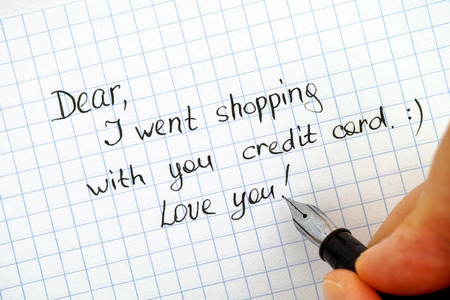 Dear,
I went shopping
with you credit card. :)
Love you!